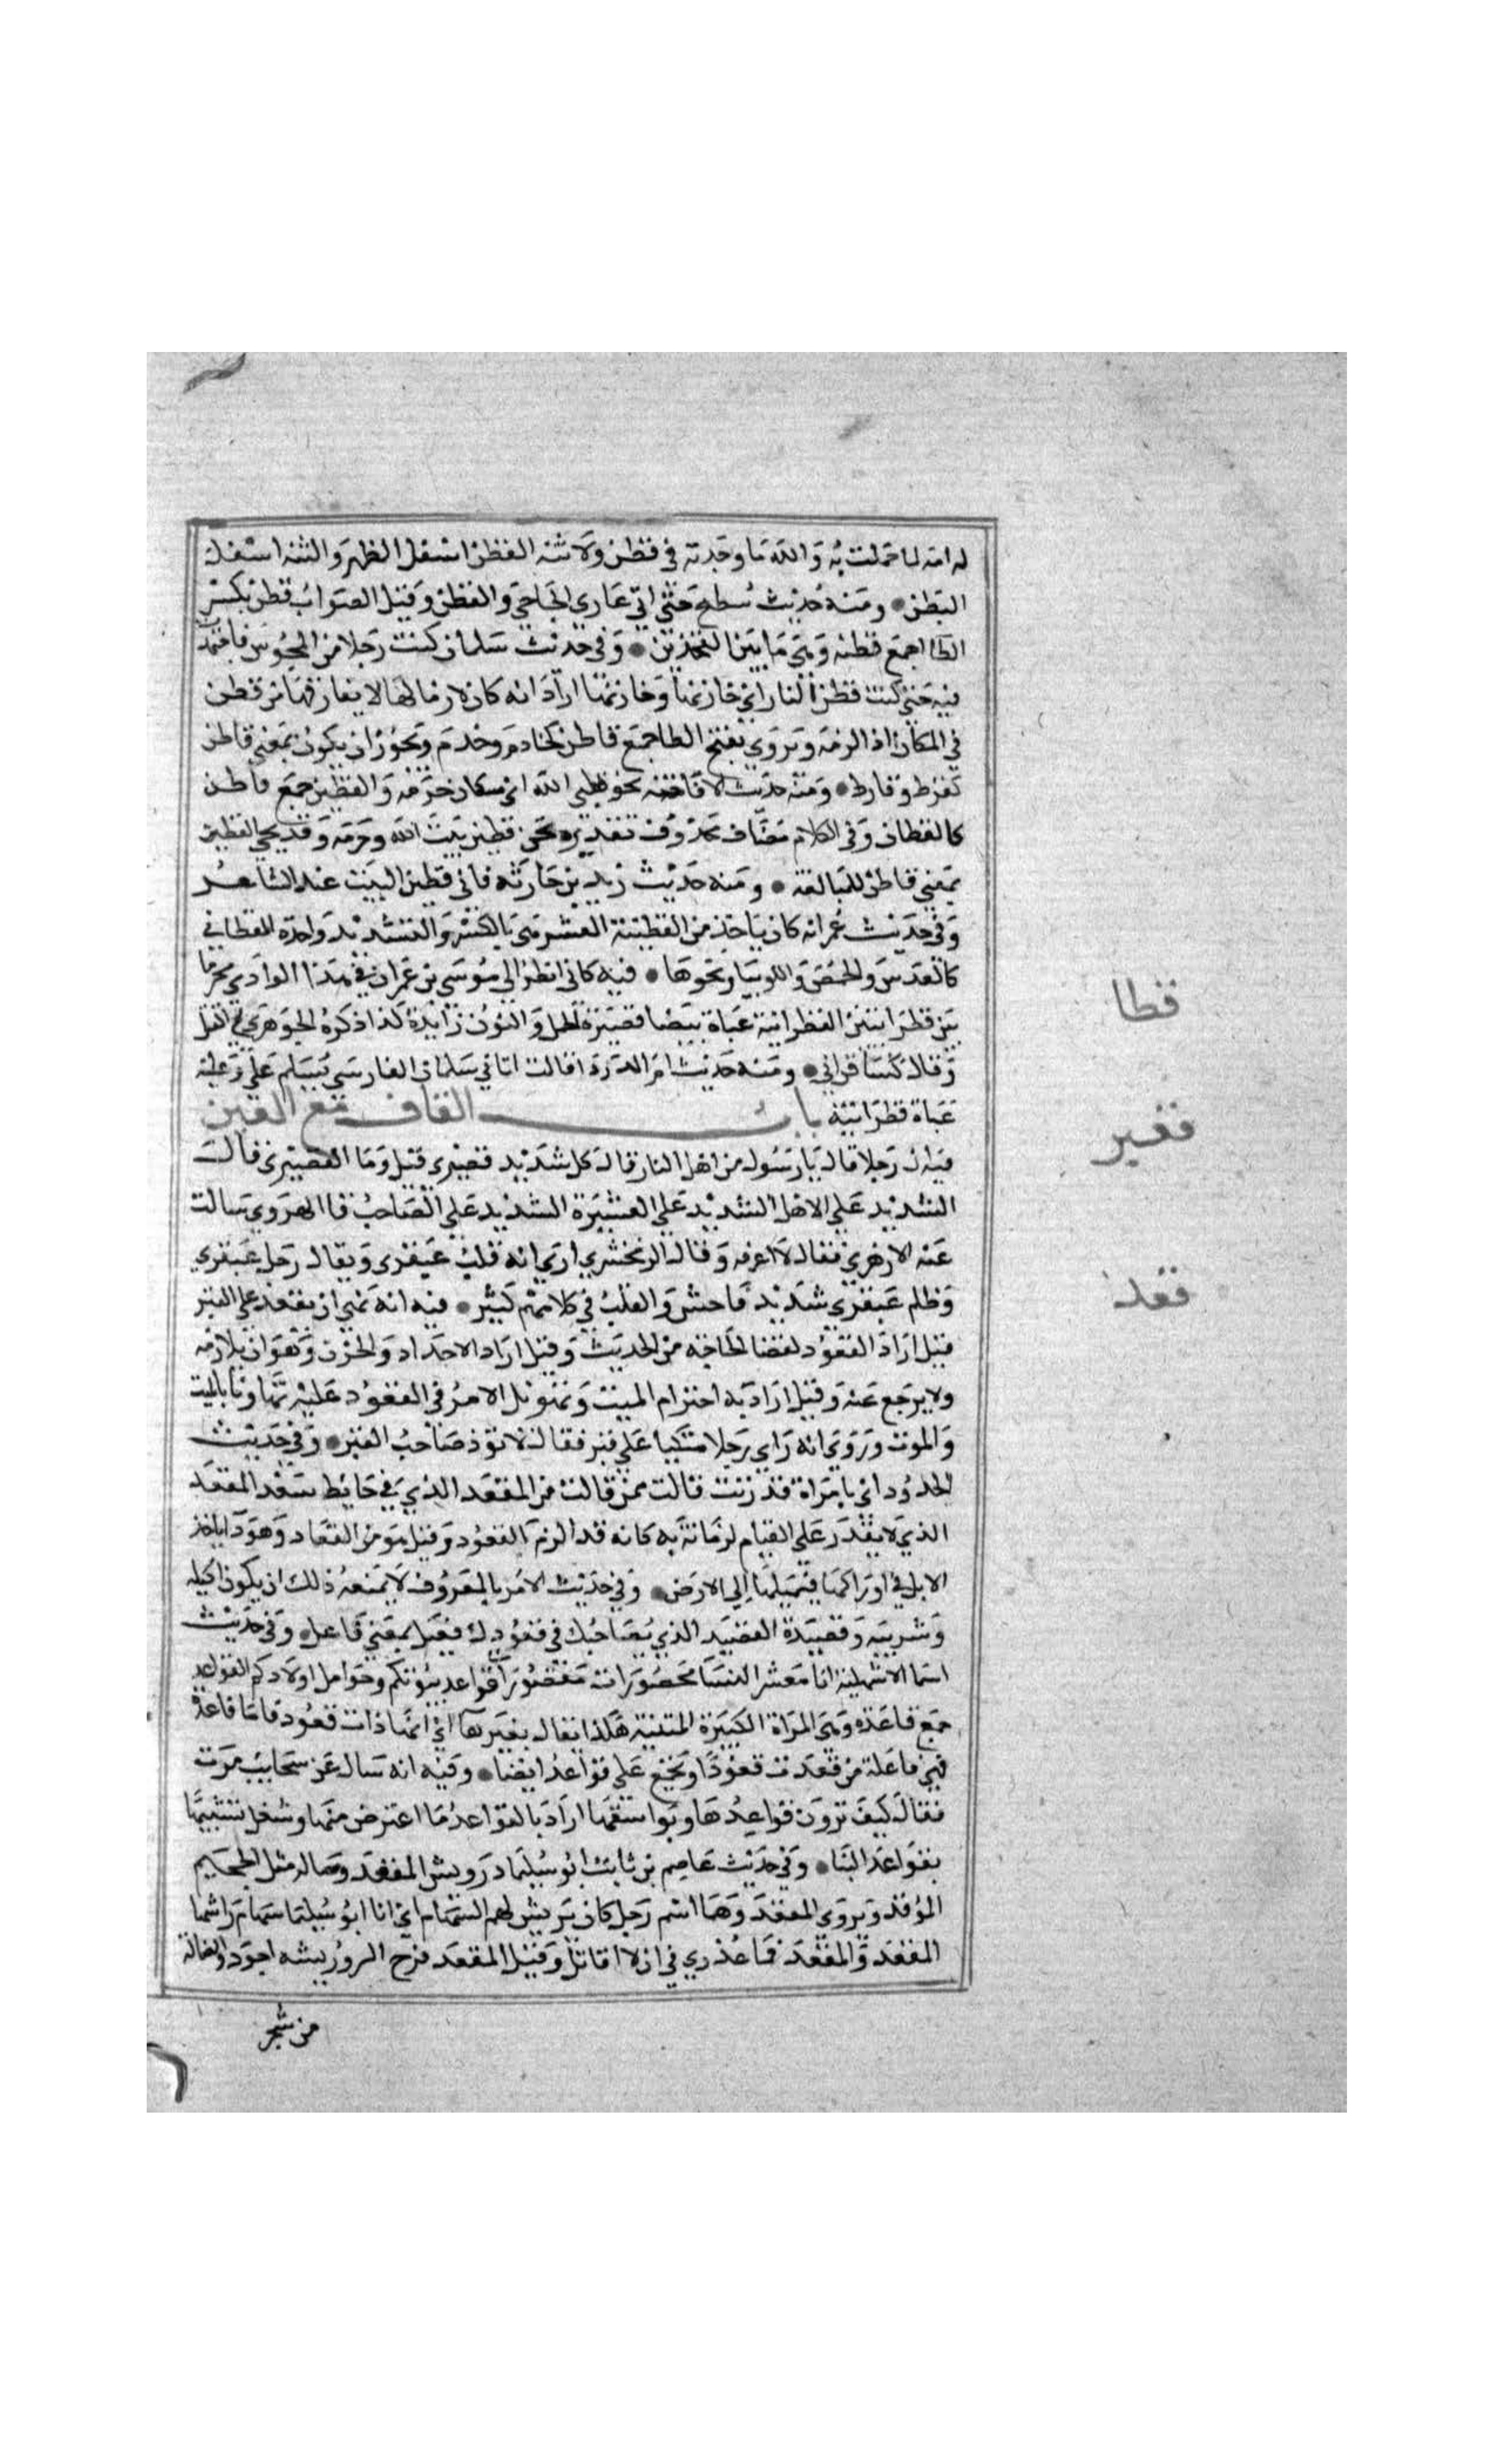 له امه لما حملت به والله ما وجدته في قطن ولا ثنه القطن اسفل الظهر والثنه اسفل
البطن ومنه حديث سطيح حتى اتى عاري الجاجي والقطن وقيل الصواب قطن بكسر
الطا جمع قطنه وهي ما بين الفخذين وفي حديث سلمان كنت رجلا من المجوس فاجتهدت
فيه حتى كنت قطن النار اي خازنها وخازنها اراد انه كان لازما لها لا يفارقها من قطن
في المكان اذا لزمه ويروى بفتح الطا جمع قاطن كخادم وخدم ويجوز ان يكون بمعنى قاطن
كفرط وفارط ومنه حديث الافاضه نحن قطين الله اي سكان حرمه والقطين جمع قاطن
كالقطان وفي الكلام مضاف محذوف تقديره نحن قطين بيت الله وحرمه وقد يجي القطين
بمعنى قاطن للمبالغة ومنه حديث زيد بن حارثه فاني قطين البيت عند المشاعر
وفي حديث عمر انه كان ياخذ من القطنية العشر هي بالكسر والتشديد واحدة القطاني
كالعدس والحمص واللوبيا ونحوها فيه كاني انظر الى موسى بن عمران في هذا الوادي محرما
بين قطوانيتين القطوانية عباة بيضا قصيرة الخمل والنون زايدة كذا ذكره الجوهري في المعتل
وقال كسا قطواني ومنه حديث ام الدرداء قالت اتاني سلمان الفارسي يسلم علي وعليه
عباة قطوانيه باب القاف مع العين
فيه ان رجلا قال يا رسول من اهل النار قال كل شديد قعبري قيل وما القعبري قال
الشديد على الاهل الشديد على العشيرة الشديد على الصاحب قال الهروي سالت
عنه الازهري فقال لا اعرفه وقال الزمخشري ارى انه قلب عبقري ويقال رجل عبقري
وظلم عبقري شديد فاحش والقلب في كلامهم كثير فيه انه نهى ان يقعد على القبر
قيل اراد القعود لقضا الحاجه من الحديث وقيل اراد الاحداد والحزن وهو ان يلازمه
ولا يرجع عنه وقيل اراد به احترام الميت وتهويل الامر في القعود عليه تهاونا بالميت
والموت وروي انه راى رجلا متكيا على قبر فقال لا توذ صاحب القبر وفي حديث
الحدود اتي بامراة قد زنت قالت ممن قالت من المقعد الذي في حايط سعد المقعد
الذي لا يقدر على القيام لزمانة به كانه قد الزم القعود وقيل هو من القعاد وهو دا ياخذ
الابل في اوراكها فيميلها الى الارض وفي حديث الامر بالمعروف لا يمنعه ذلك ان يكون اكيله
وشريبه وقعيده القعيد الذي يصاحبك في قعودك فعيل بمعنى فاعل وفي حديث
اسما الاشهلية انا معشر النسا محصورات مقصورات قواعد بيوتكم وحوامل اولادكم القواعد
جمع قاعده وهي المراة الكبيرة المسنة هكذا يقال بغير ها اي انها ذات قعود فاما قاعده
فهي فاعلة من قعدت قعودا وتجمع على قواعد ايضا وفيه انه سال عن سحايب مرت
فقال كيف ترون قواعدها وبواسقها اراد بالقواعد ما اعترض منها وسفل تشبيها
بقواعد البنا وفي حديث عاصم بن ثابت ابو سليمان وريش المقعد وضاله مثل الجحيم
الموقد ويروى المقعد وهما اسم رجل كان يريش لهم السهام اي انا ابو سليمان ومعي سهام راشها
المقعد والمقعد فما عذري في ان لا اقاتل وقيل المقعد فرخ النسر وريشه اجود والضالة
من شجر
قطا
قعبر
قعد